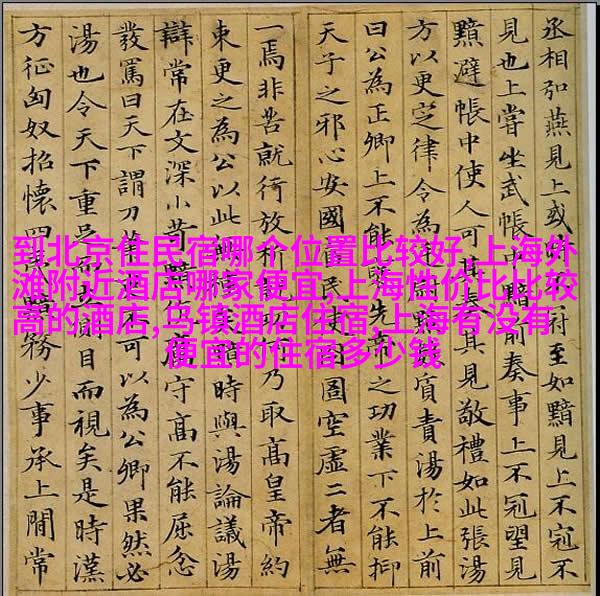 丞相弘燕見上或不冠至如黯見上不冠不
見也上嘗坐武帳中黯前奏事上不冠望見
黯避帳中使人可其奏其見敬禮如此張湯
方以更定律令為廷尉黯數質責湯於上前
曰公為正卿上不能褒先帝之功業下不能抑
天子之邪心安國富民使囹圄空虛二者無
一焉非苦就行放析就功何乃取高皇帝約
束更之為公以此無種矣黯時與湯論議湯
辯常在文深小苛黯伉厲守高不能屈忿
發罵曰天下謂刀筆吏不可以為公卿果然必
湯也令天下重足而立側目而視矣是時漢
方征匈奴招懷四夷黯務少事承上間常
到北京住民宿哪个位置比较好,上海外
滩附近酒店哪家便宜,上海性价比比较
高的酒店,乌镇酒店住宿,上海有没有
便宜的住宿多少钱